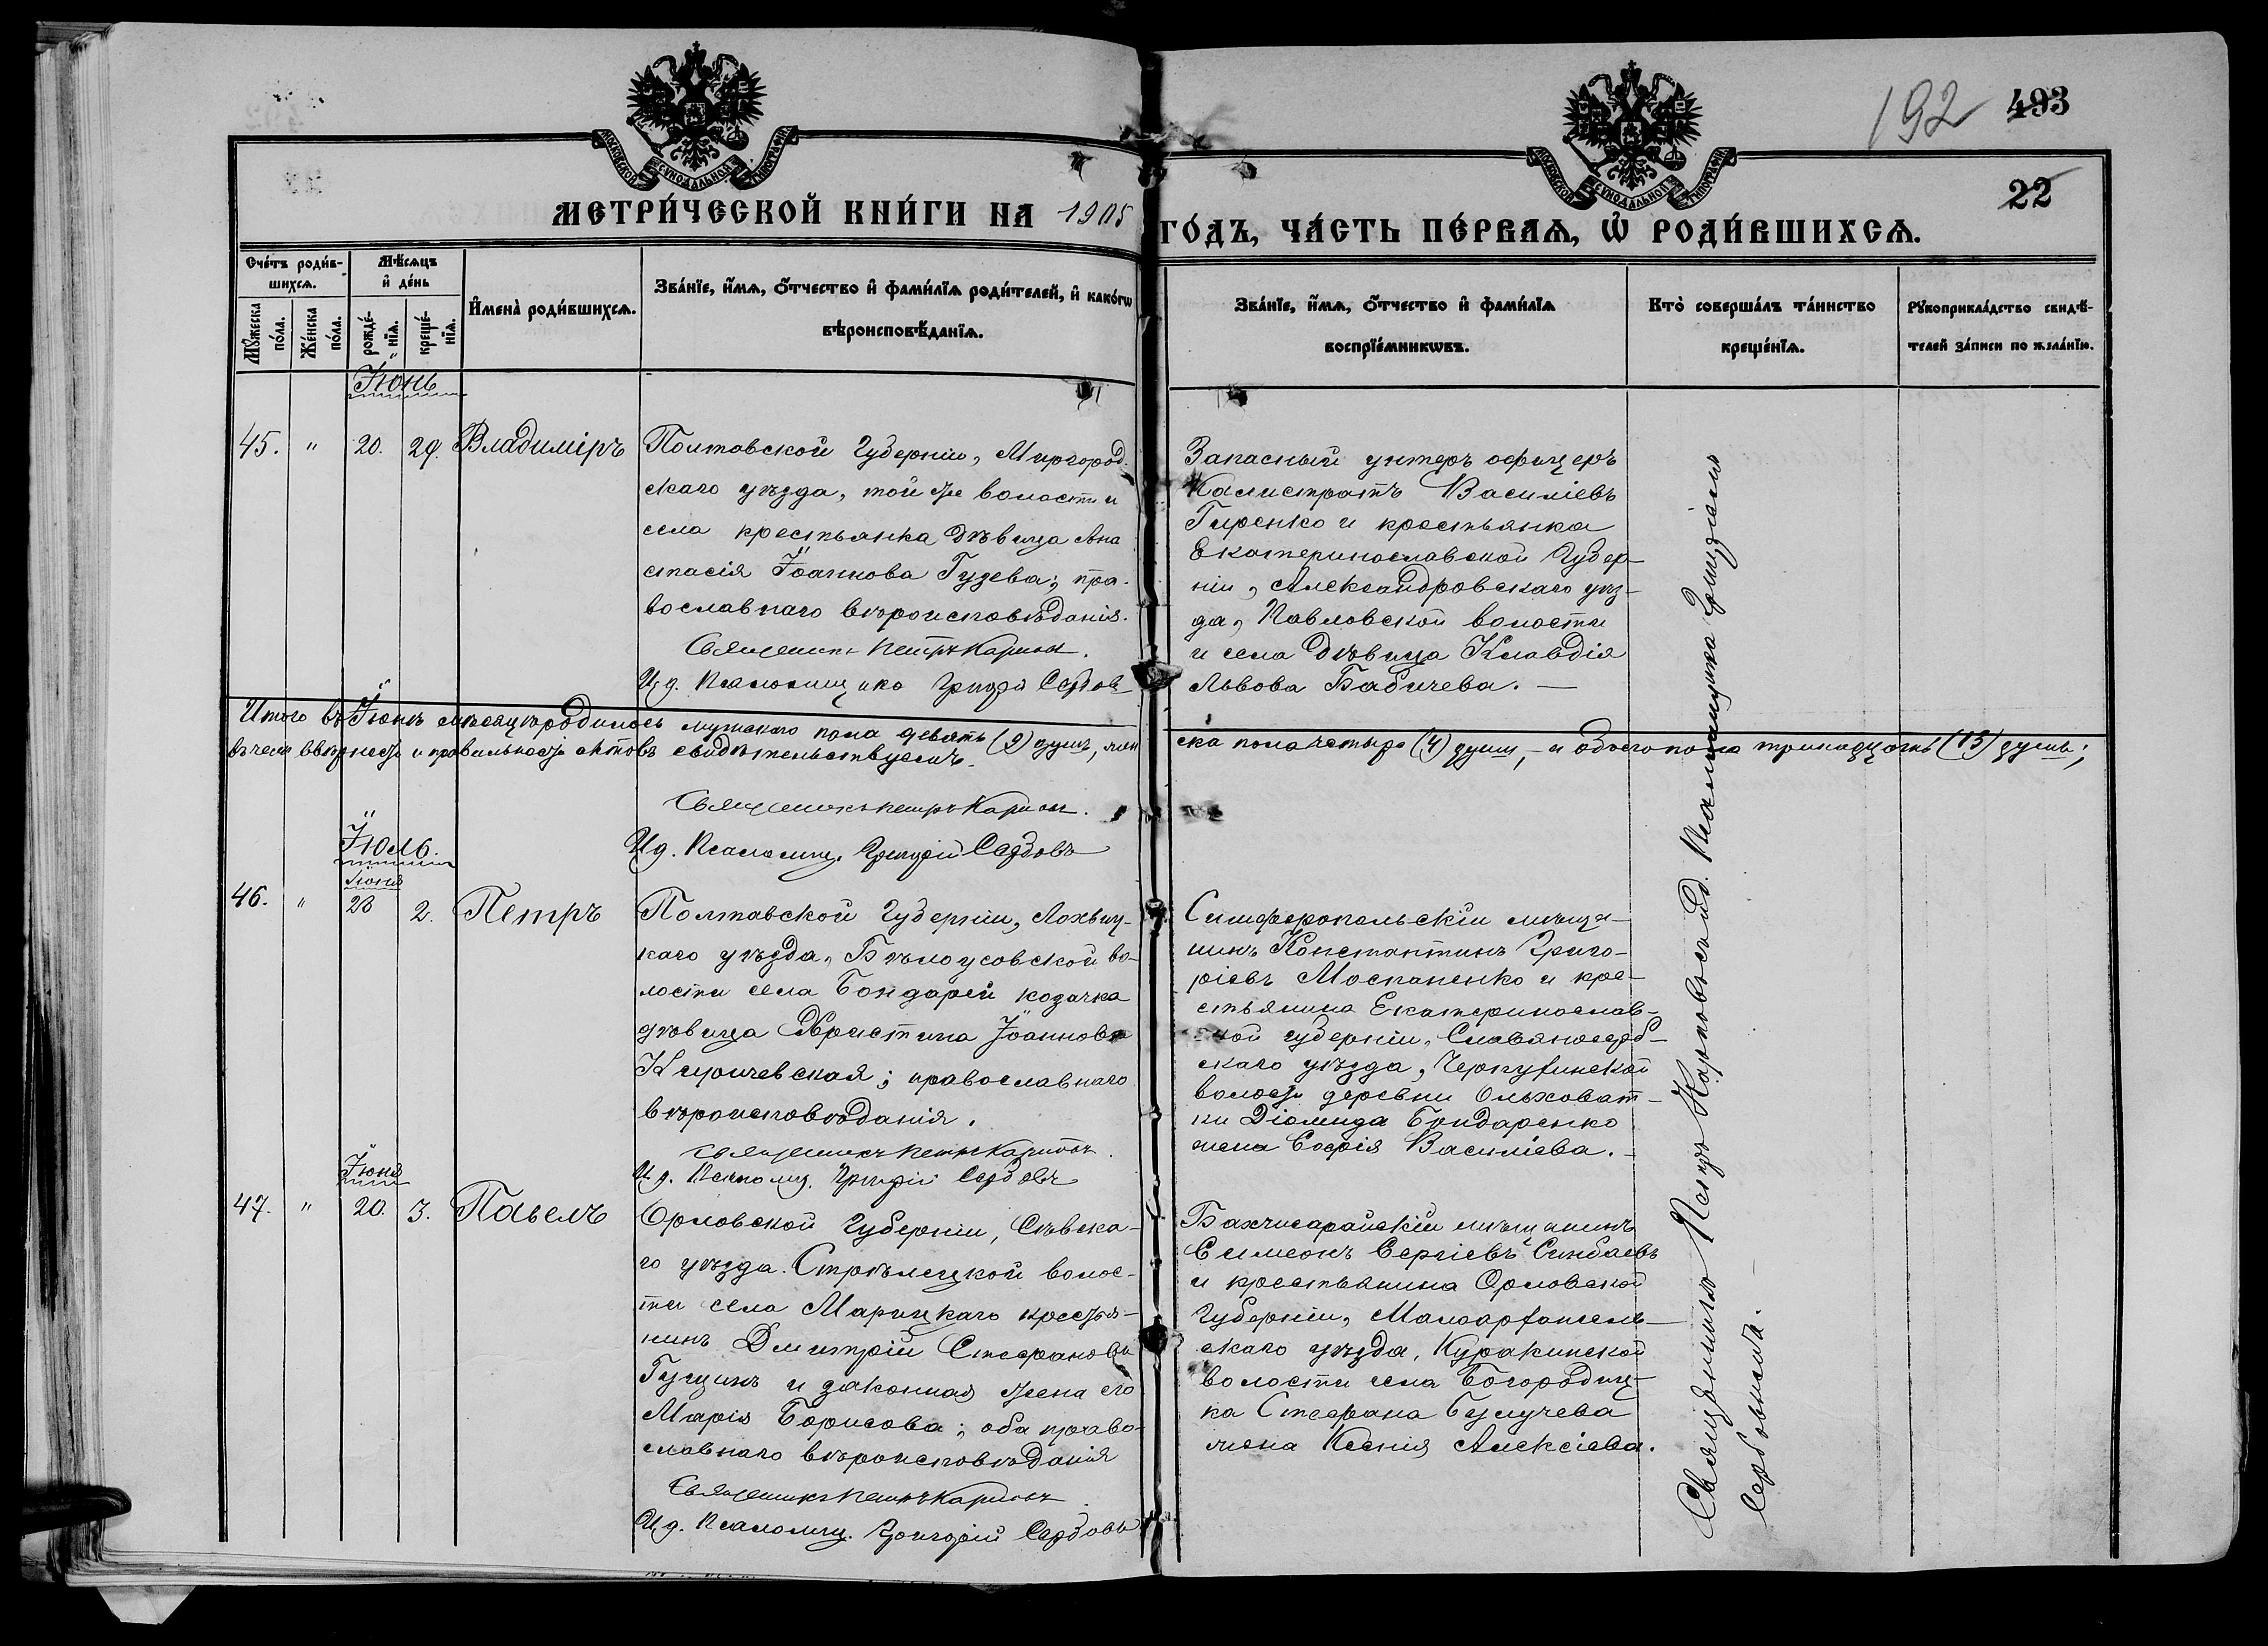 192 493
22
МОСКОВСКОЙ СУНОДАЛЬНОЙ ТИПОГРАФІИ
МОСКОВСКОЙ СУНОДАЛЬНОЙ ТИПОГРАФІИ
МЕТРИ́ЧЕСКОЙ КНИ́ГИ НА 1905 ГО́ДЪ, ЧА́СТЬ ПЕ́РВАѦ, Ѡ҆ РОДИ́ВШИХСѦ.
Сче́тъ роди́в-
шихсѧ.
Мѣ́сѧцъ
и҆ де́нь
Мꙋ́жеска
по́ла.
Же́нска
по́ла.
рожде́-
нїѧ.
креще́-
нїѧ.
И҆мена̀ роди́вшихсѧ.
Зва́нїе, и҆́мѧ, о҆́тчество и҆ фами́лїѧ роди́телей, и҆ како́гѡ
вѣроисповѣ́данїѧ.
Зва́нїе, и҆́мѧ, о҆́тчество и҆ фами́лїѧ
воспрїе́мникѡвъ.
Кто̀ соверша́лъ та́инство
креще́нїѧ.
Рꙋкоприкла́дство свидѣ́-
телей за́писи по жела́нїю.
Іюнь
45. " 20. 29. Владиміръ
Полтавской Губерніи, Миргород-
скаго уѣзда, той же волости и
села крестьянка дѣвица Ана
стасія Іоаннова Гузева; пра-
вославнаго вѣроисповѣданія.
Священникъ Петръ Карповъ.
И. д. Псаломщика Григорій Сербовъ
Запасный унтеръ офицеръ
Калистратъ Василіевъ
Гиренко и крестьянка
Екатеринославской Губер-
ніи, Александровскаго уѣз-
да, Павловской волости
и села дѣвица Клавдія
Львова Бабичева. —
Итого въ Іюнѣ мѣсяцѣ родилось мужскаго пола девять (9) душъ, жен
ска пола четыре (4) души, — и обоего пола тринадцать (13) душъ;
въ чемъ вѣрность и правильность актовъ свидѣтельствуемъ.
Священникъ Петръ Карповъ.
И. д. Псаломщ. Григорій Сербовъ
Іюль.
Іюня
46. " 28 2. Петръ
Полтавской Губерніи, Лохвиц-
каго уѣзда, Бѣлоусовской во-
лости села Бондарей козачка
дѣвица Христина Іоаннова
Киричевская; православнаго
вѣроисповѣданія.
Священникъ Петръ Карповъ.
И. д. Псаломщ. Григорій Сербовъ
Симферопольскій мѣща-
нинъ Константинъ Григо-
ріевъ Моспаненко и кре-
стьянина Екатеринослав-
ской губерніи, Славяносерб-
скаго уѣзда, Черкусинской
волости деревни Ольховат-
ки Діомида Бондаренко
жена Софія Василіева. —
Іюня
47. " 20. 3. Павелъ
Орловской Губерніи, Сѣвска-
го уѣзда. Стрѣлецкой волос-
ти села Марицкаго крестья-
нинъ Дмитрій Стефановъ
Гущинъ и законная жена его
Марія Борисова; оба право-
славнаго вѣроисповѣданія
Священникъ Петръ Карповъ.
И. д. Псаломщ. Григорій Сербовъ
Бахчисарайскій мѣщанинъ
Симеонъ Сергіевъ
и крестьянина Орловской
Губерніи, Малоархангель-
скаго уѣзда, Куракинской
волости села Богородиц-
ка Стефана
жена Ксенія Алексіева.
Священникъ Петръ Карповъ съ и. д. Псаломщика Григоріемъ
Сербовымъ.